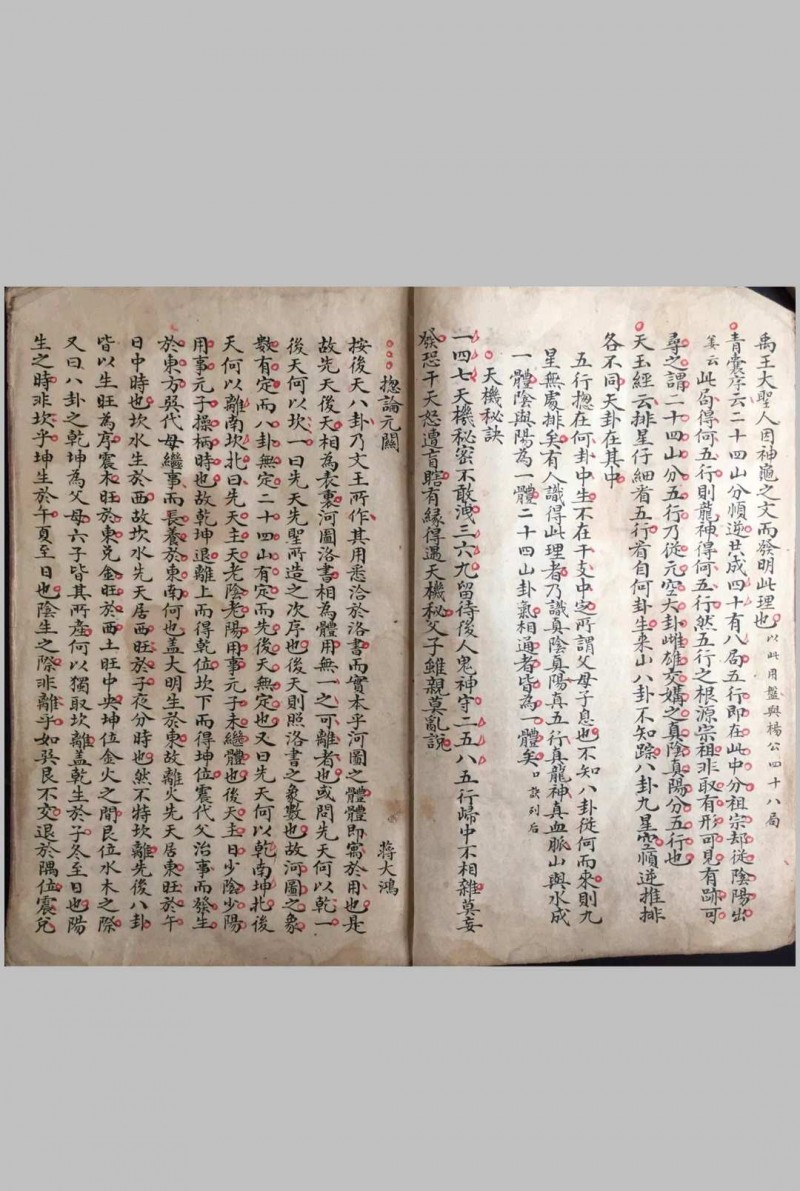 禹王大聖人因神龜之文而發明此理也以此用盤與楊公四十八局
青囊序云二十四山分順逆共成四十有八局五行即在此中分祖宗却從陰陽出
箋云此局得何五行則龍神得何五行然五行之根源宗祖非取有形可見有跡可
尋之謂二十四山分五行乃從元空大卦雌雄交媾之真陰真陽分五行也
天玉經云排星仔細看五行看自何卦生來山八卦不知踪八卦九星空順逆推排
各不同天卦在其中
五行揔在何卦中生不在干支中定所謂父母子息也不知八卦從何而來則九
星無處排矣有人識得此理者乃識真陰真陽真五行真龍神真血脈山與水成
一體陰與陽為一體二十四山卦氣相通者皆為一體矣口訣列后
天機秘訣
一四七天機秘密不敢洩三六九留待後人鬼神守二五八五行歸中不相雜莫妄
發恐干天怒遭盲瞎有緣得遇天機秘父子雖親莫亂說
揔論元關 蔣大鴻
按後天八卦乃文王所作其用悉洽於洛書而實本乎河圖之體體即寓於用也是
故先天後天相為表裏河圖洛書相為體用無一之可離者也或問先天何以乾一
後天何以坎一曰先天先聖所造之次序也後天則照洛書之象數也故河圖之象
數有定而八卦無定二十四山有定而先後天無定也又曰先天何以乾南坤北後
天何以離南坎北曰先天主天老陰老陽用事元子未繼體也後天主日少陰少陽
用事元子操柄時也故乾坤退離上而得乾位坎下而得坤位震代父治事而發生
於東方巽代母繼事而長養於東南何也蓋大明生於東故離火先天居東旺於午
日中時也坎水生於西故坎水先天居西旺於子夜分時也然不特坎離先後八卦
皆以生旺為序震木旺於東兌金旺於西土旺中央坤位金火之間艮位水木之際
又曰八卦之乾坤為父母六子皆其所產何以獨取坎離蓋乾生於子冬至日也陽
生之時非坎乎坤生於午夏至日也陰生之際非離乎如巽艮不交退於隅位震兌